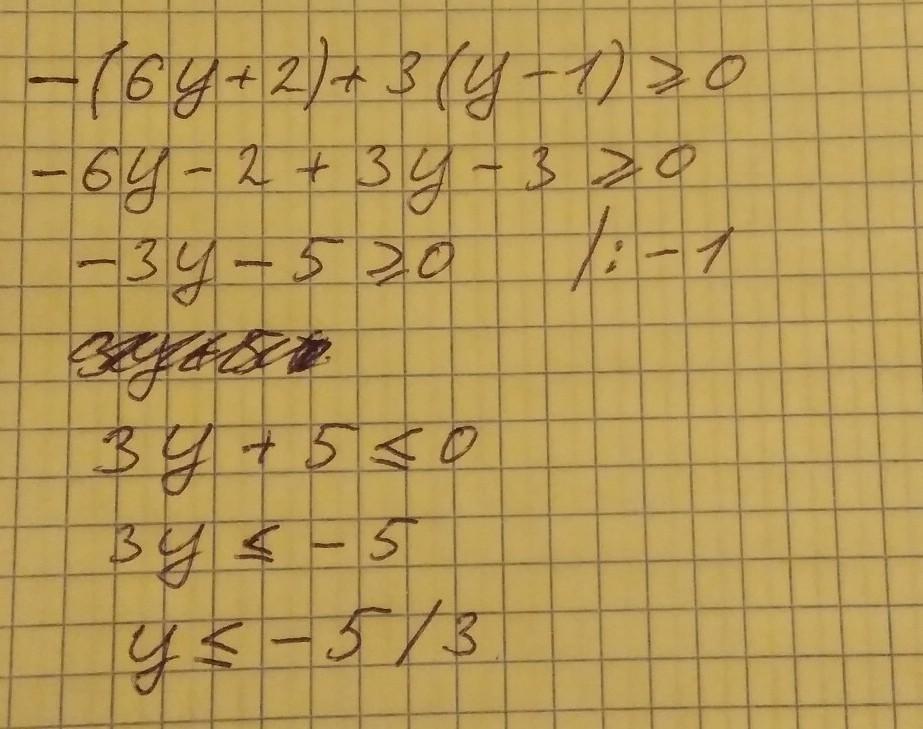 -(6y+2)+3(y-1)⩾0
-6y-2+3y-3⩾0
-3y-5⩾0 /:-1
3y+5≤0
3y≤-5
y≤-5/3